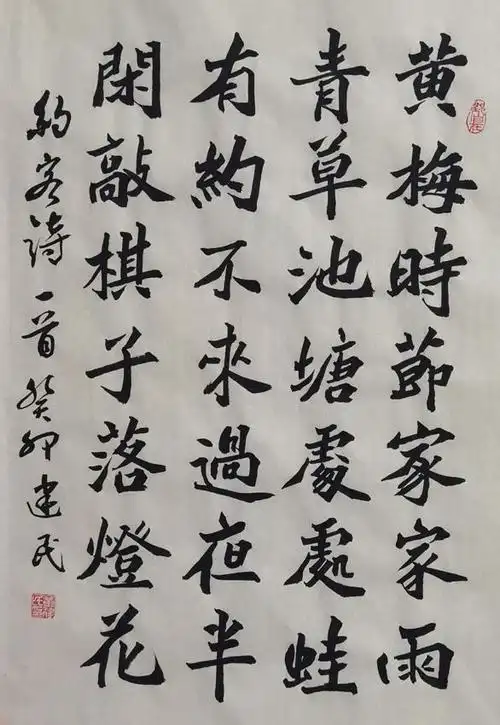 黄梅時節家家雨
青草池塘處處蛙
有約不來過夜半
閑敲棋子落燈花
約客詩一首癸卯建民